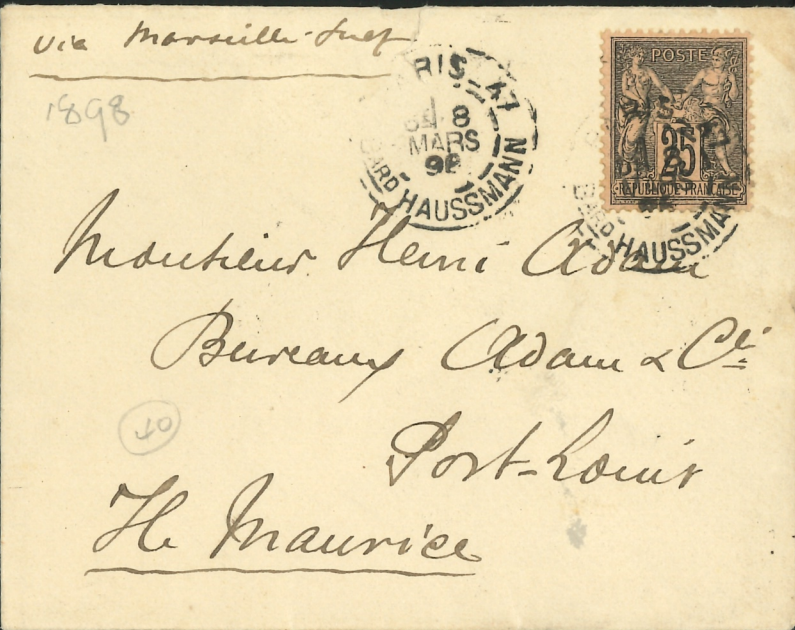 Via Marseille-Suez
1898
PARIS_47
8
MARS
98
BARD HAUSSMANN
POSTE
25
REPUBLIQUE FRANCAISE
HAUSSMANN
Monsieur Henri Adam
Bureaux Adam & Cie
Port-Louis
Ile Maurice